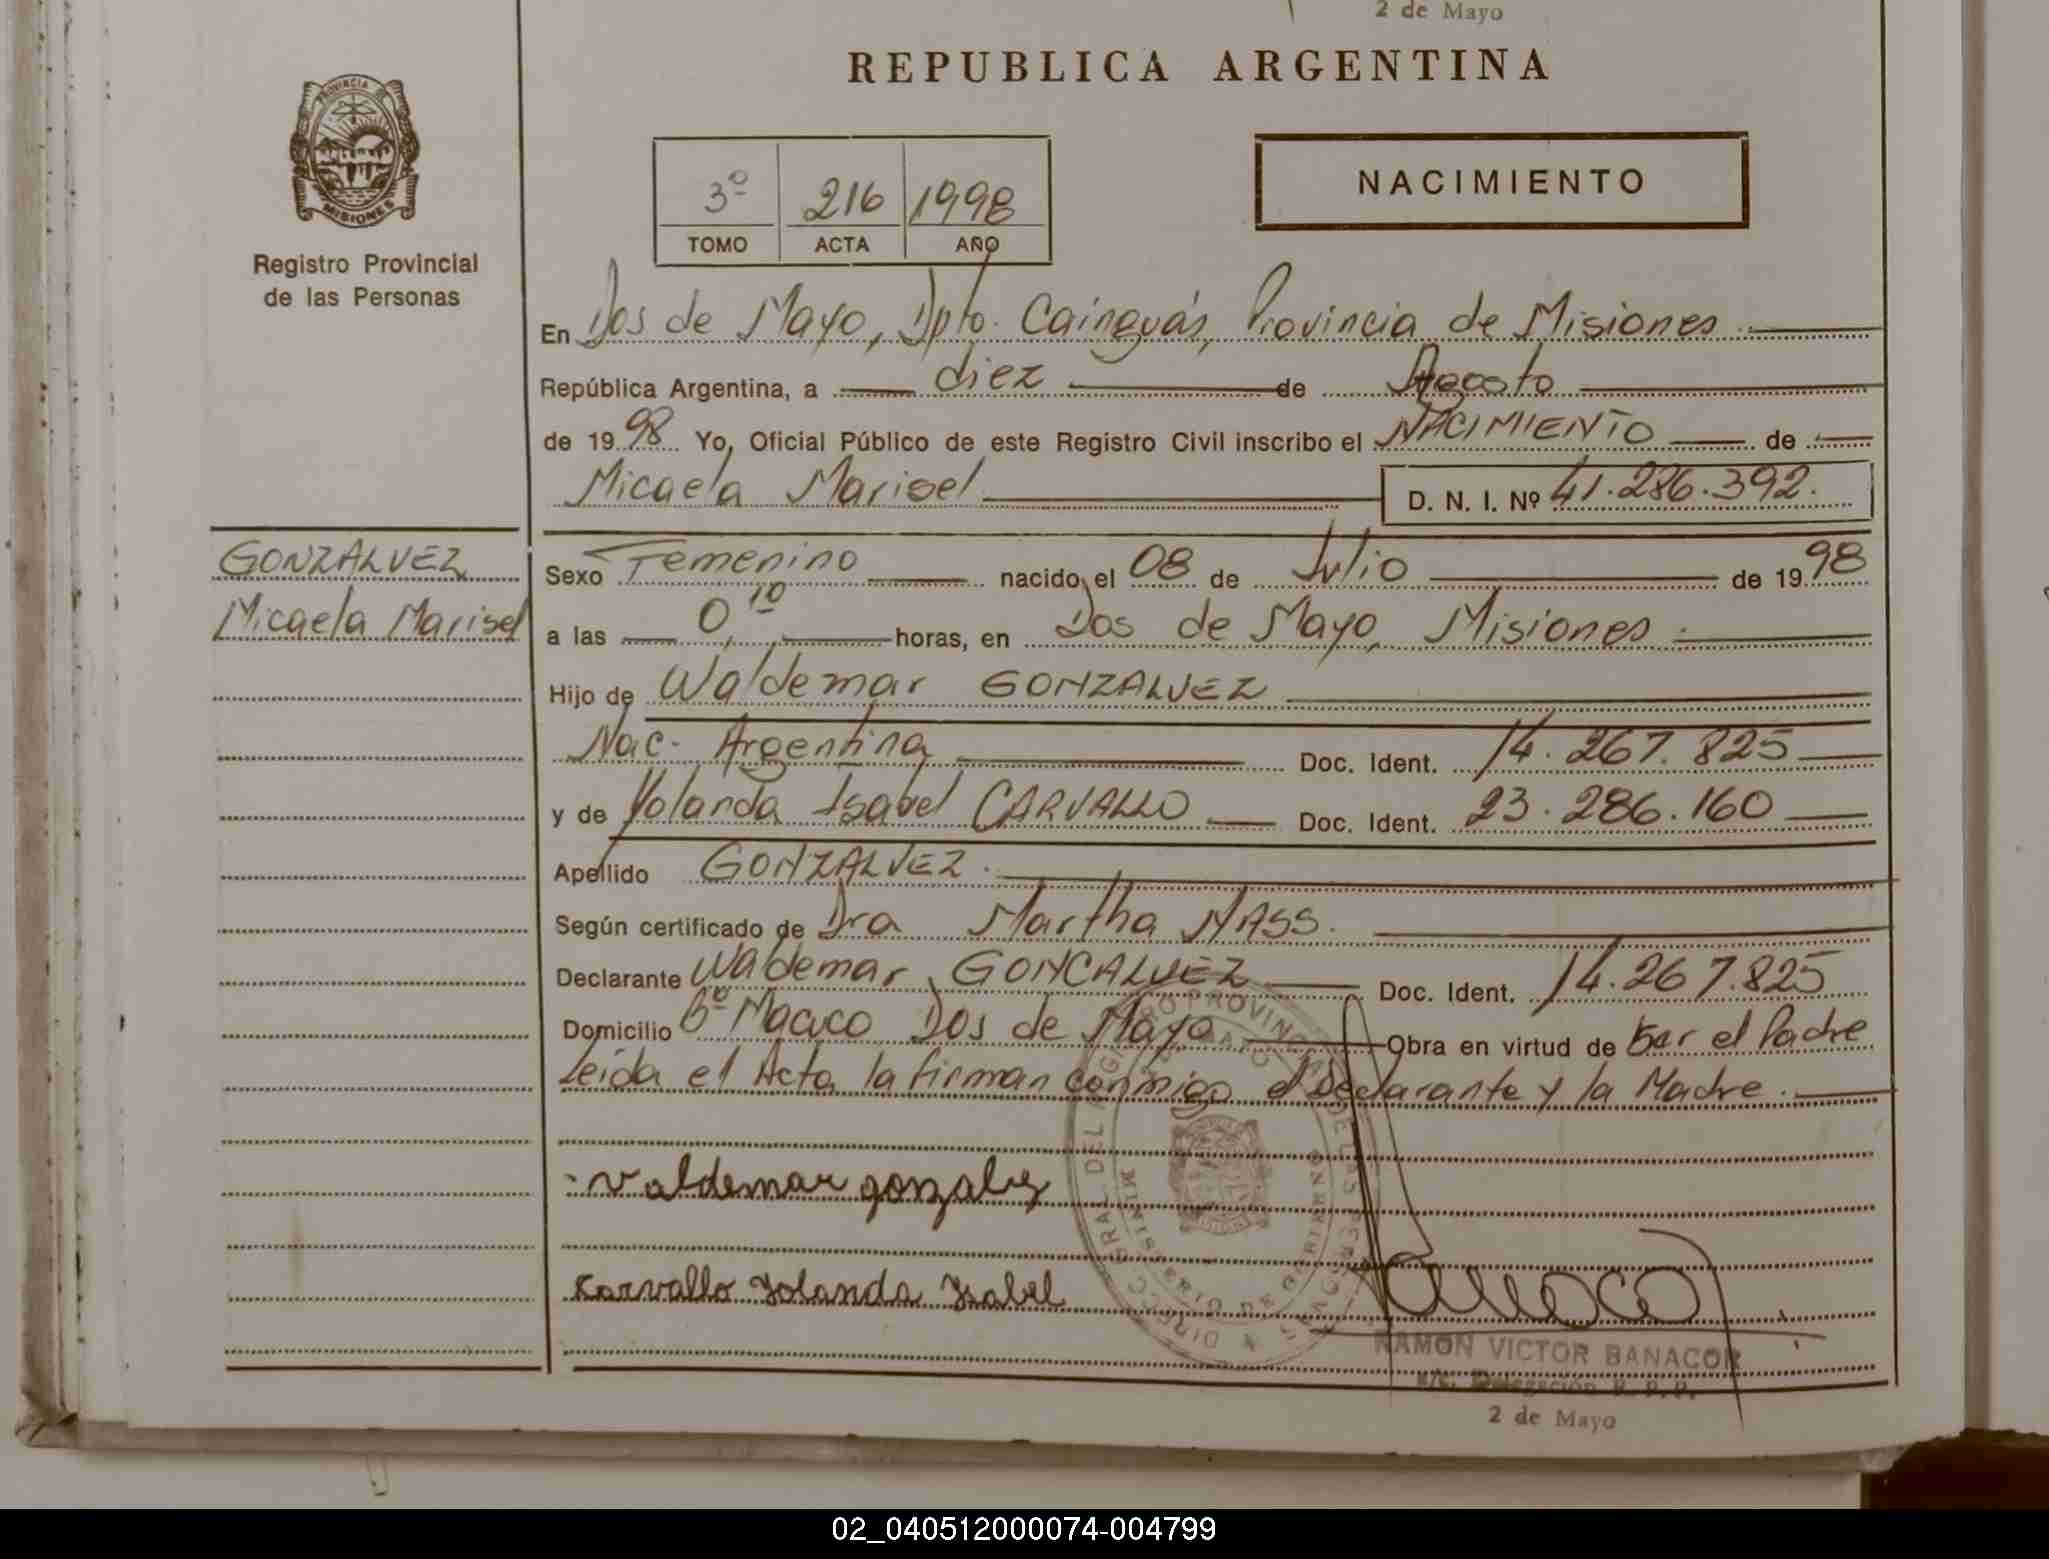 2 de Mayo
REPUBLICA ARGENTINA
PROVINCIA
MISIONES
Registro Provincial
de las Personas
3º 216 1998
TOMO ACTA AÑO
NACIMIENTO
En Dos de Mayo, Dpto. Cainguás, Provincia de Misiones
República Argentina, a diez de Agosto
de 1998 Yo, Oficial Público de este Registro Civil inscribo el NACIMIENTO de
Micaela Marisel D. N. I. Nº 41.286.392.
GONZALVEZ
Micaela Marisel
Sexo Femenino nacido el 08 de Julio de 1998
a las 0,10 horas, en Dos de Mayo, Misiones
Hijo de Waldemar GONZALVEZ
Nac. Argentina Doc. Ident. 14.267.825
y de Yolanda Isabel CARVALLO Doc. Ident. 23.286.160
Apellido GONZALVEZ.
Según certificado de Dra Martha NASS.
Declarante Waldemar GONCALVEZ Doc. Ident. 14.267.825
Domicilio Bº Macuco Dos de Mayo Obra en virtud de Ser el Padre
Leída el Acta la firman conmigo el Declarante y la Madre.
Valdemar gonzalvez
Karvallo Yolanda Isabel
RAMON VICTOR BANACOR
a/c. Delegación R. P. P.
2 de Mayo
02_040512000074-004799